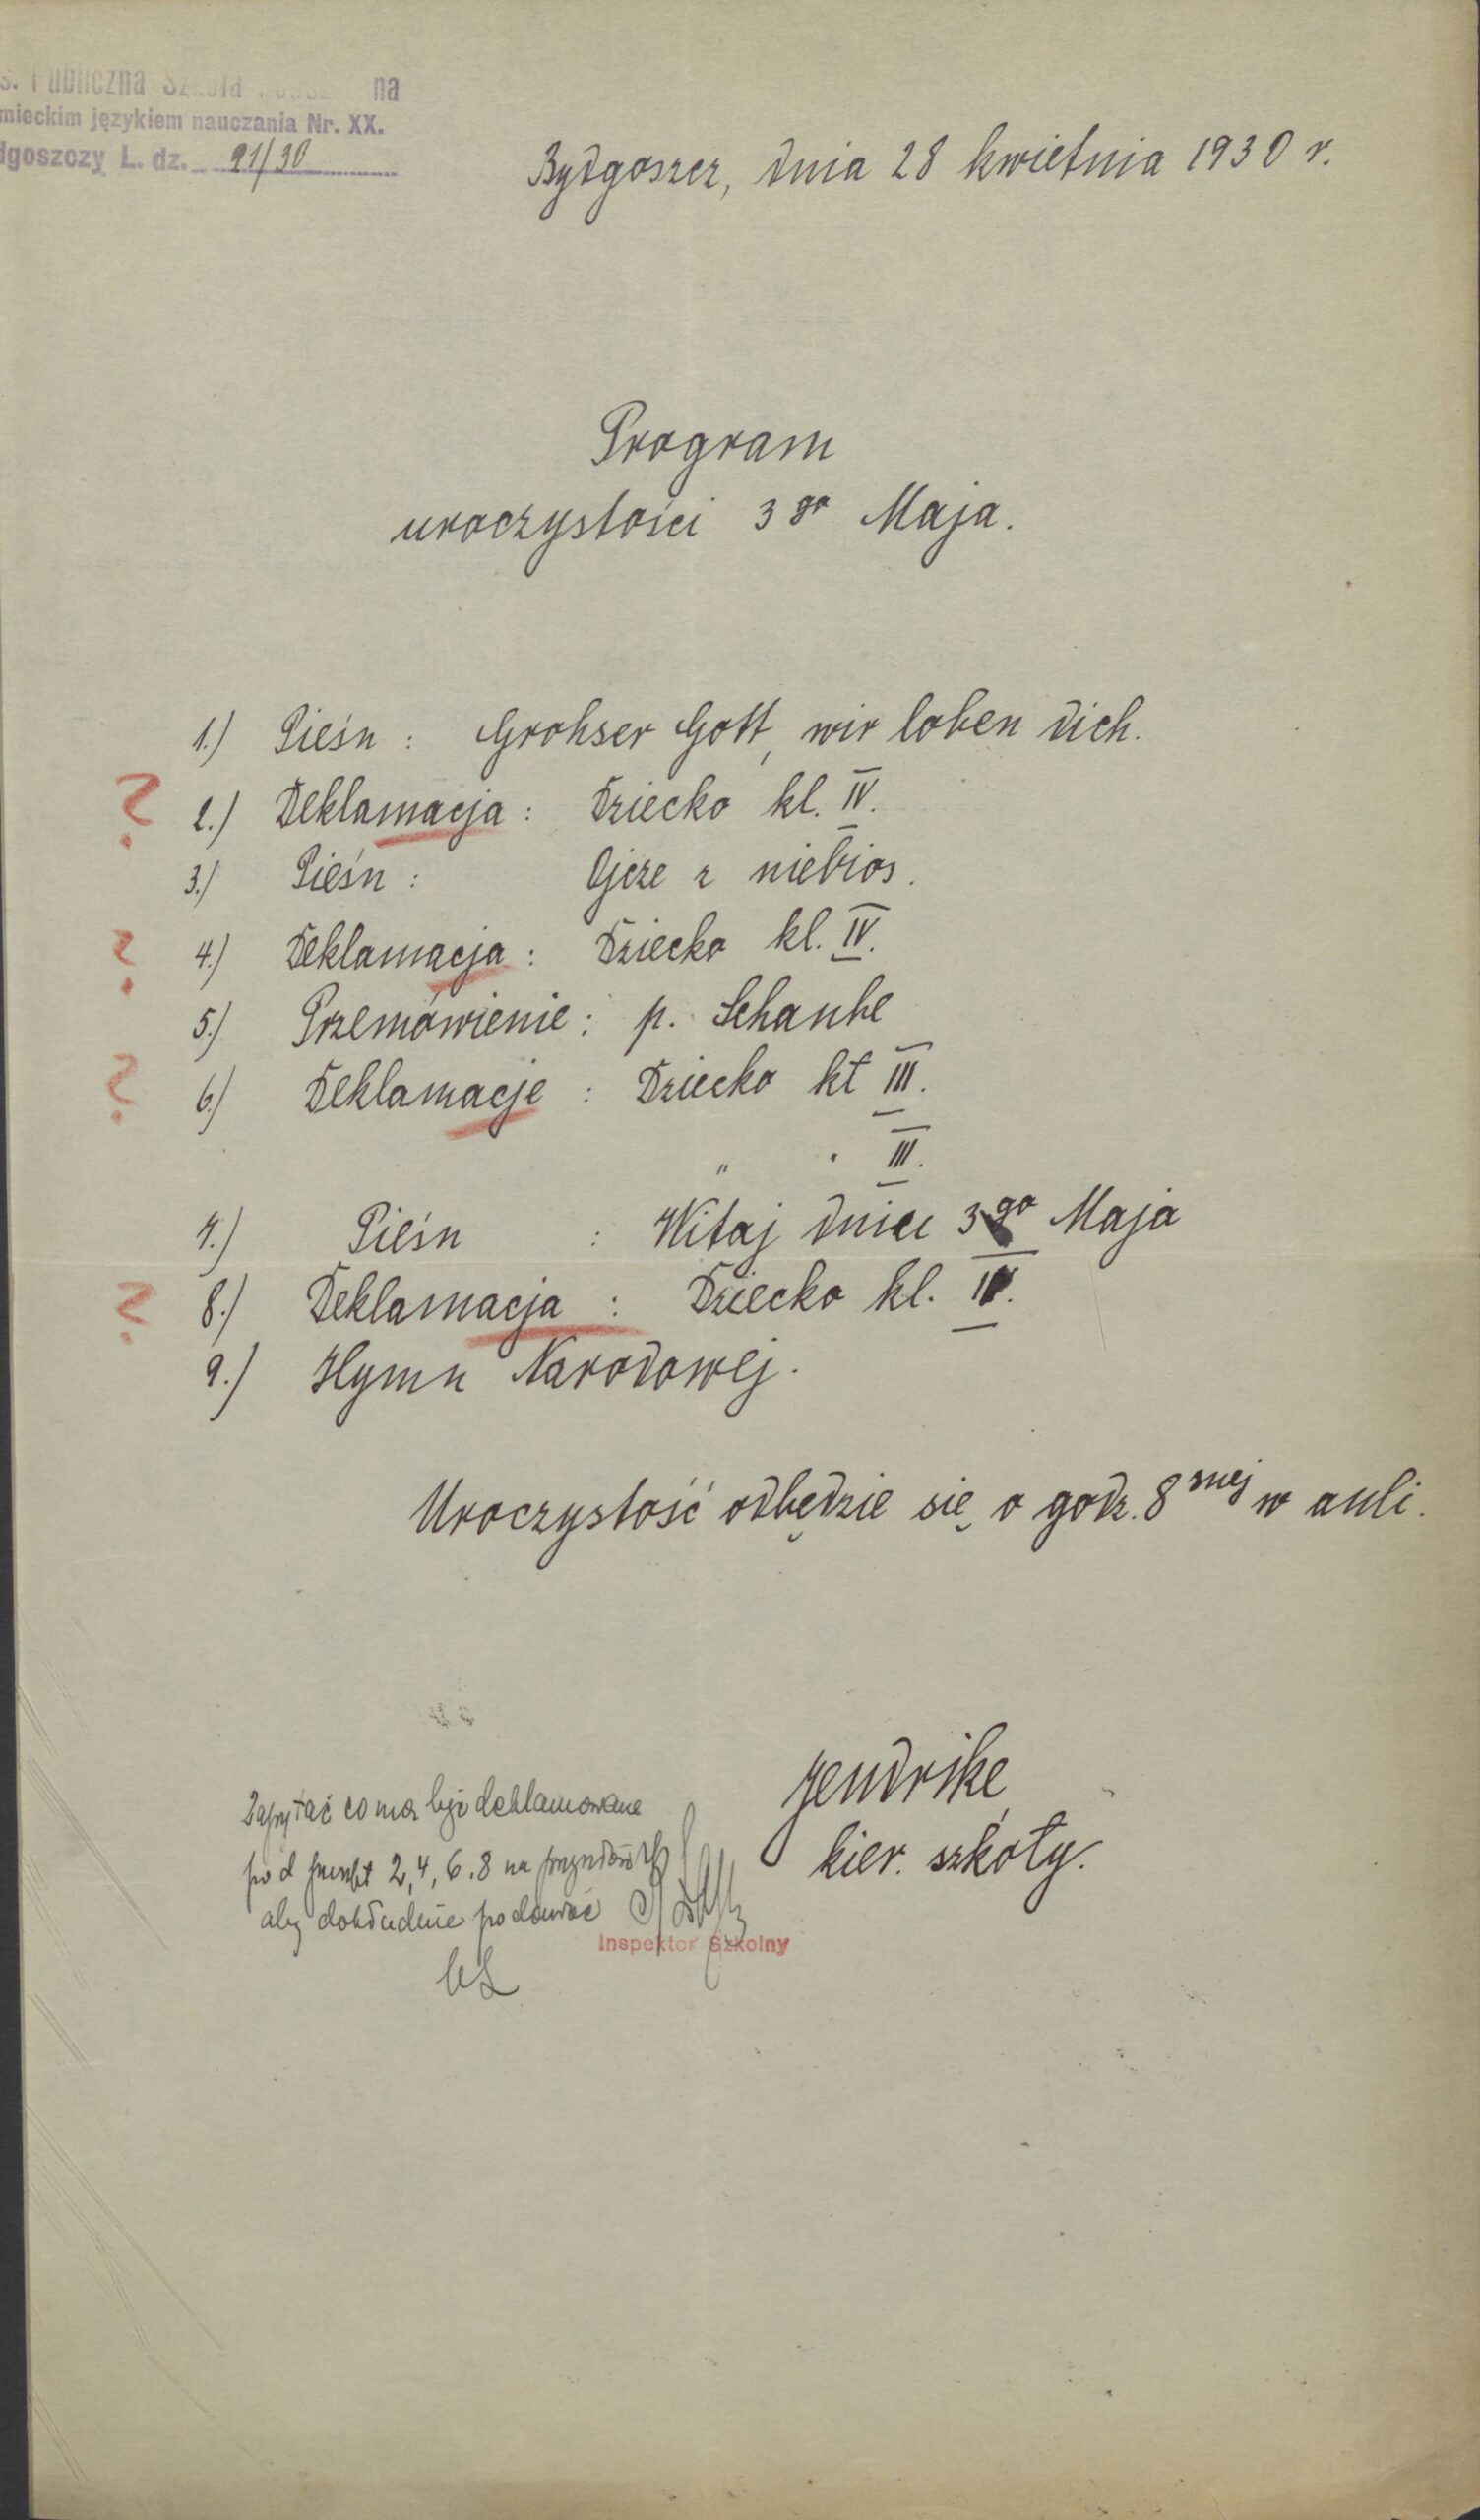 s. Publiczna Szkoła na
mieckim językiem nauczania Nr. XX.
dgoszczy L. dz. 91/30
Bydgoszcz, dnia 28 kwietnia 1930 r.
Program
uroczystości 3 go Maja.
1.) Pieśn : Grohser Gott, wir loben dich.
? 2.) Deklamacja : Dziecko kl. IV.
3.) Pieśn : Ojcze z niebios.
? 4.) Deklamacja : Dziecko kl. IV.
5.) Przemówienie : p. Schaube
? 6.) Deklamacje : Dziecko kl III.
" " III.
7.) Pieśn : Witaj dniu 3 go Maja
? 8.) Deklamacja : Dziecko kl. IV.
9.) Hymn Narodowej.
Uroczystość odbędzie się o godz. 8 mej w auli.
Jendrike
kier. szkoły.
Zapytać co ma być deklamowane
pod punkt 2, 4, 6. 8 na przyszłość
aby dokładnie podawać
Inspektor Szkolny